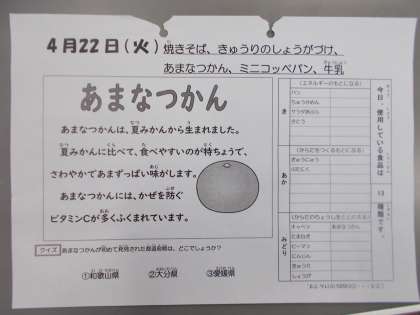 4月22日（火）焼きそば、きゅうりのしょうがづけ、
あまなつかん、ミニコッペパン、牛乳
あまなつかん
あまなつかんは、夏みかんから生まれました。
夏みかんに比べて、食べやすいのが特ちょうで、
さわやかであまずっぱい味がします。
あまなつかんには、かぜを防ぐ
ビタミンCが多くふくまれています。
クイズ あまなつかんが初めて発見された都道府県は、どこでしょうか？
①和歌山県 ②大分県 ③愛媛県
今日、使用している食品は 13 種類です。
き
（エネルギーのもとになる）
パン
ちゅうかめん
サラダあぶら
さとう
あか
（からだをつくるもとになる）
ぎゅうにゅう
ぶたにく
みどり
（からだのちょうしをととのえる）
キャベツ あまなつかん
たまねぎ
ピーマン
にんじん
きゅうり
しょうが